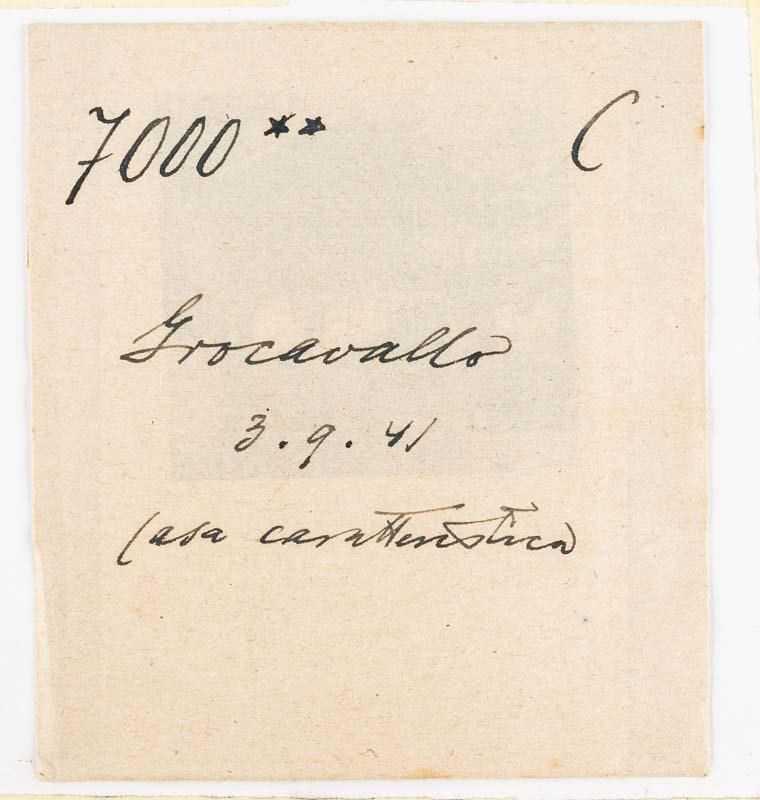 7000 ** C
Grocavallo
3.9.41
Casa caratteristica